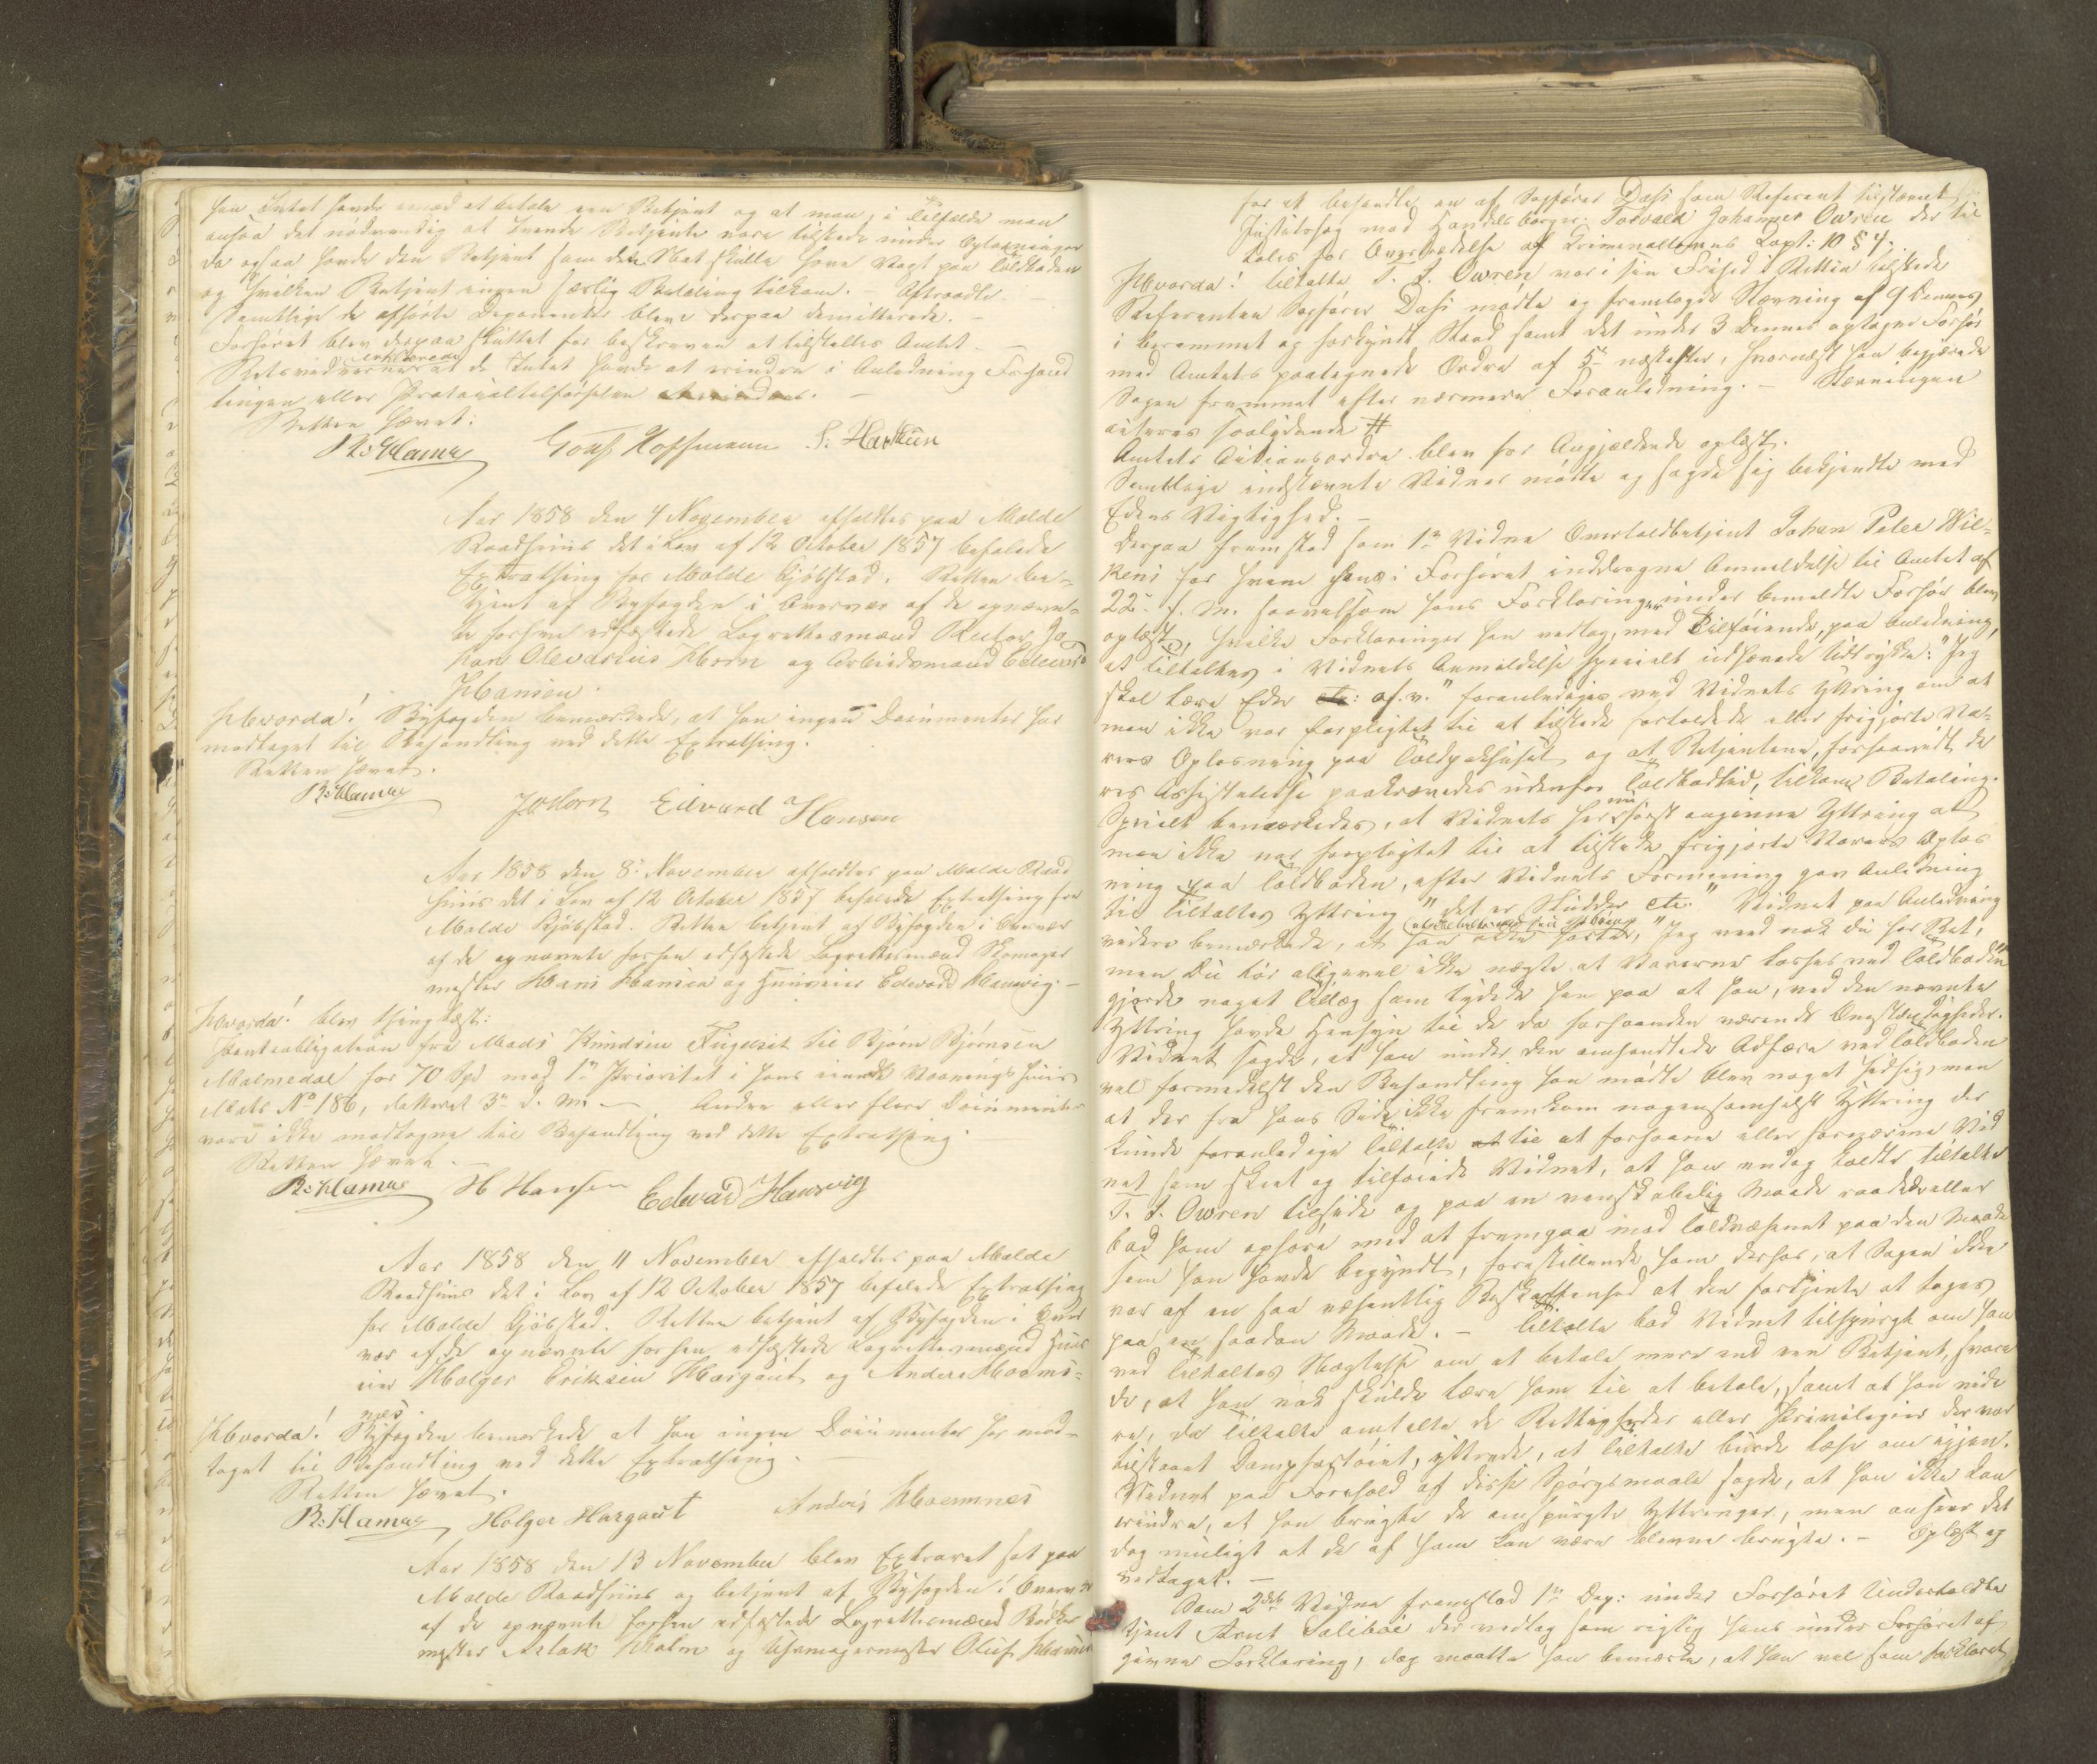 han Intet havde imod at betale een Betjent og at man, i Tilfælde man
ansaa det nødvendig at tvende Betjente vare tilstede under Oplosningen
da ogsaa havde den Betjent som den Nat skulle have Vagt paa Toldboden
og hvilken Betjent ingen særlig Betaling tilkom. – Aftraadte. –
Samtlige de afhørte Deponenter bleve derpaa demitterede. –
Forhøret blev derpaa sluttet for beskreven at tilstilles Amtet. –
Retsvidnerne erklærede at de Intet havde at erindre i Anledning Forhand
lingen eller Protocoltilførselen
Retten hævet.
R: Hamas Gotf Hoffmann S: Hansen
Aar 1858 den 4 November afholdtes paa Molde
Raadhuus det i Lov af 12 October 1857 befalede
Extrathing for Molde Kjøbstad. Retten be=
tjent af Byfogden i Overvær af de opnævn=
te forhen edfæstede Laugrettesmænd Jo
han Olevarius Horn og Arbeidsmand Edevard
Hansen.
Hvorda! Byfogden bemærkede, at han ingen Documenter har
modtaget til Behandling ved dette Extrathing.
Retten hævet.
R: Hamas J O Horn Edvard Hansen
Aar 1858 den 8: November afholdtes paa Molde Raad
huus det i Lov af 12 October 1857 befalede Extrathing for
Molde Kjøbstad. Retten betjent af Byfogden i Overvær
af de opnævnte forhen edfæstede Laugrettesmænd Skomager
mester Hans Hansen og Huuseier Edvard Hanswig. –
Hvorda! blev thinglæst:
Panteobligation fra Mads Knudsen til Bjørn Bjørnsen
Malmedal for 70 Spd med 1ste Prioritet i hans eiende Vaaningshuus
Matr No 186, datteret 3de d. M. – Andre eller flere Documenter
vare ikke modtagne til Behandling ved dette Extrathing.
Retten hævet. –
R: Hamas H Hansen Edvard Hanswig
Aar 1858 den 11 November afholdtes paa Molde
Raadhuus det i Lov af 12 October 1857 befalede Extrathing
for Molde Kjøbstad. Retten betjent af Byfogden i Over
vær af de opnævnte forhen edfæstede Laugrettesmænd Huus
eier Holger Eriksen Hargaut og Anders Hoems=
næs.
Hvorda! Byfogden bemærkede at han ingen Documenter har mod=
taget til Behandling ved dette Extrathing. –
Retten hævet.
R: Hamas Holger Hargaut Anders Hoemsnes
Aar 1858 den 13 November blev Extraret sat paa
Molde Raadhuus og betjent af Byfogden i Overvær
af de opnævnte forhen edfæstede Laugrettesmænd Bødker
mester Aslak Holm og Uhrmagermester Oluf Hansen
for at behandle en af Sagfører Dahl som Referent tilstævnet
Justitssag mod Handelsborger Torvald Johannes Owren der til
tales for Overtrædelse af Criminallovens Capt: 10 § 4.
Hvorda! Tiltalte T. J. Owren var i sin Frihed i Retten tilstede
Referenten Sagfører Dahl mødte og fremlagde Stævning af 9 dennes
i berammet og forkyndt Stand samt det under 3 dennes optagne Forhør
med Amtets paategnede Ordre af 5te næstefter, hvornæst han begjærede
Sagen fremmet efter nærmere Foranledning. – Stævningen
citeres saalydende #
Amtets Actionsordre blev for Angjældende oplæst.
Samtlige indstævnte Vidner mødte og sagde sig bekjendte med
Edens Vigtighed. –
Derpaa fremstod som 1ste Vidne Overtoldbetjent Johan Peter Wil=
kens for hvem hans i Forhøret inddragne Anmeldelse til Amtet af
22. f. M. saavelsom hans Forklaringer under bemeldte Forhør blev
oplæst, hvilke Forklaringer han vedtog, med Tilføiende, paa Anledning,
at Tiltaltes i Vidnets Anmeldelse specielt udhævede Udtrykke: "Jeg
skal lære Eder o.s.v." foranledigedes ved Vidnets Yttring om at
man ikke var forpligtet til at tilstede fortoldede eller frigjorte Va=
rers Oplosning paa Toldpakhuset og at Betjentene, forsaavidt de
res Assistance paakrævedes udenfor Toldbodtid, tilkom Betaling.
Specielt bemærkedes, at Vidnets her nu først angivne Yttring at
man ikke var forpligtet til at tilstede frigjorte Varers Oplos
ning paa Toldboden, efter Vidnets Formening gav Anledning
til Tiltaltes Yttring "det er Sludder etc." Vidnet paa Anledning
videre bemærkede, at "Jeg veed nok Du har Ret,
men Du tør alligevel ikke nægte at Varerne losses ved Toldboden"
gjorde noget Tillæg som tydede hen paa at han, ved den nævnte
Yttring havde Hensyn til de da forhaanden værende Omstændigheder.
Vidnet sagde, at han under den omhandlede Adfærd ved Toldboden
vel formedelst den Behandling han mødte blev noget hidsig, men
at der fra hans Side ikke fremkom nogensomhelst Yttring der
kunde foranledige Tiltalte til at forhaane eller fornærme Vid
net som skeet og tilføiede Vidnet, at han endog kaldte Tiltalte
T. J. Owren tilside og paa en venskabelig Maade raadede eller
bad ham ophøre med at fremgaa mod Toldvæsenet paa den Maade
som han havde begyndt, forestillende ham derhos, at Sagen ikke
var af en saa væsentlig Beskaffenhed at den fortjente at tages
paa en saadan Maade. – Tiltalte bad Vidnet tilspurgt om han
ved Tiltaltes Vægrelse om at betale mere end een Betjent, svare
de, at han nok skulde lære ham til at betale, samt at han vide
re, da Tiltalte omtalte de Rettigheder eller Privilegier der var
tilstaaet Dampfartøiet, yttrede, at Tiltalte burde læse om igjen.
Vidnet paa Forehold af disse Spørgsmaale sagde, at han ikke kan
erindre, at han brugte de omspurgte Yttringer, men anseer det
dog muligt at de af ham kan være blevne brugte. – Oplæst og
vedtaget. –
Som 2det Vidne fremstod 1ste Dep: under Forhøret Undertoldbe
tjent Knut der vedtog som rigtig hans under Forhøret af
givne Forklaring, dog maatte han bemærke, at han vel som forklaret